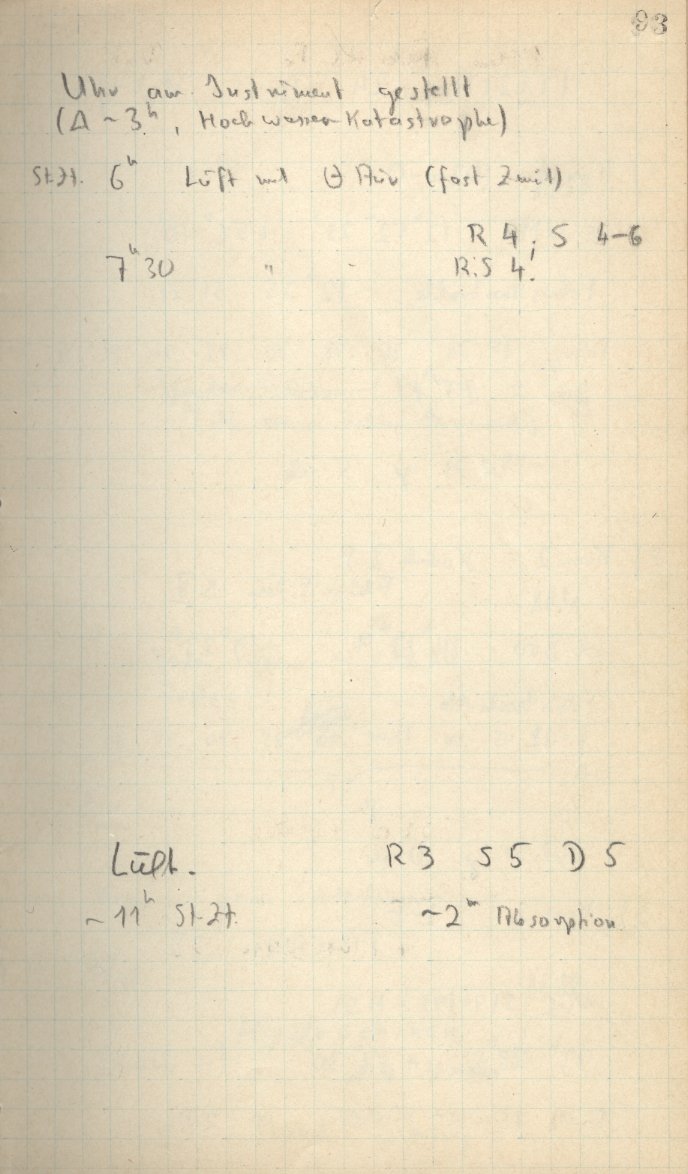 93
Uhr am Instrument gestellt
(Δ ~ 3ʰ, Hochwasser Katastrophe)
St.Zt. 6ʰ Luft mit Θ Aur (fast Zenit)
R 4, S 4-6
7ʰ30 " - R.S 4!
Luft. R 3 S 5 D 5
~ 11ʰ St.Zt. ~2ᵐ Absorption